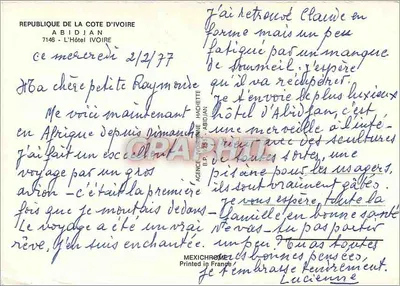 REPUBLIQUE DE LA COTE D'IVOIRE
ABIDJAN
7146 - L'Hôtel IVOIRE
ce mercredi 2/2/77
Ma chère petite Raymonde
Me voici maintenant
en Afrique depuis dimanche
j'ai fait un excellent
voyage par un gros
avion - c'était la première
fois que je montais dedans -
Le voyage a été un vrai
rêve, j'en suis enchantée.
MEXICHROME
Printed in France
HACHETTE
ABIDJAN
j'ai retrouvé Claude en
forme mais un peu
fatigué par un manque
de sommeil. j'espère
qu'il va récupérer.
je t'envoie le plus luxueux
hôtel d'Abidjan, c'est
une merveille à l'inté-
rieur avec des sculptures
de toutes sortes, une
piscine pour les usagers,
ils sont vraiment gâtés.
je vous espère toute la
famille en bonne santé
Ne vas-tu pas partir
un peu
bonnes pensées.
je t'embrasse tendrement.
Lucienne